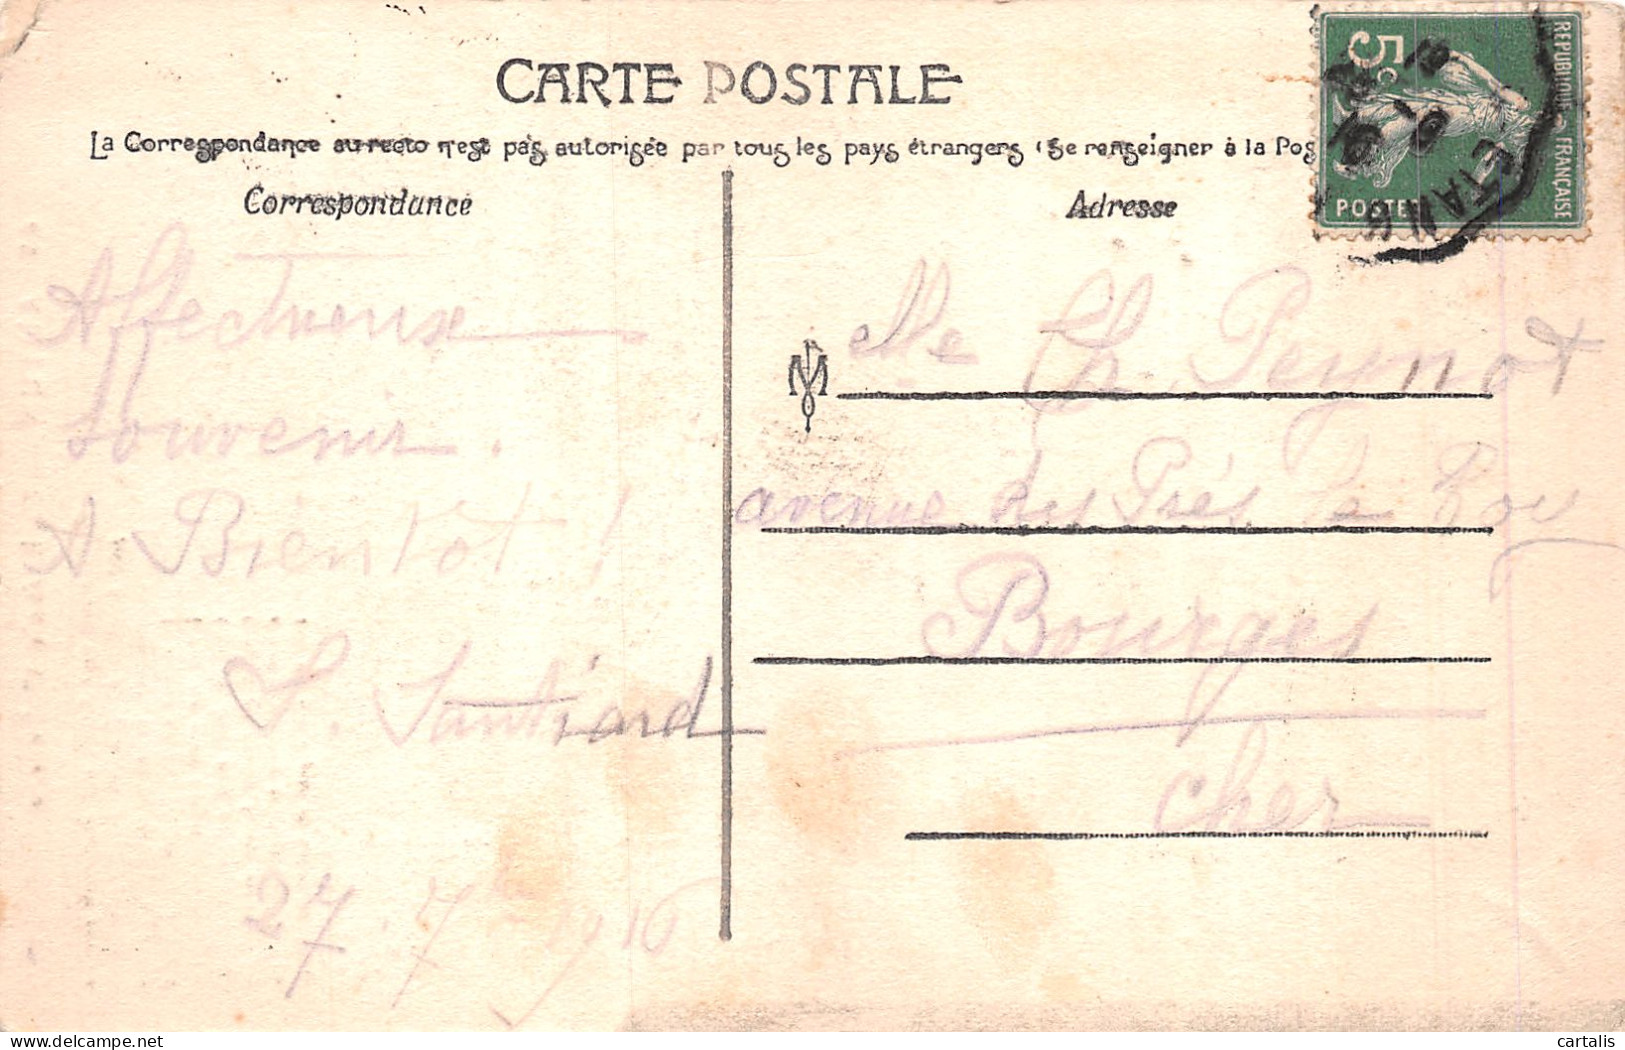 CARTE POSTALE
La Correspondance au recto n'est pas autorisée par tous les pays étrangers (Se renseigner à la Pos
Correspondance
Adresse
REPUBLIQUE FRANÇAISE
5c
POSTE
ETANG
Affectueux
souvenir.
A Bientot !
S. Santiard
27.7.1916
Mlle Ch. Peynot
avenue des Prés le Roy
Bourges
Cher
cartalis
delcampe.net